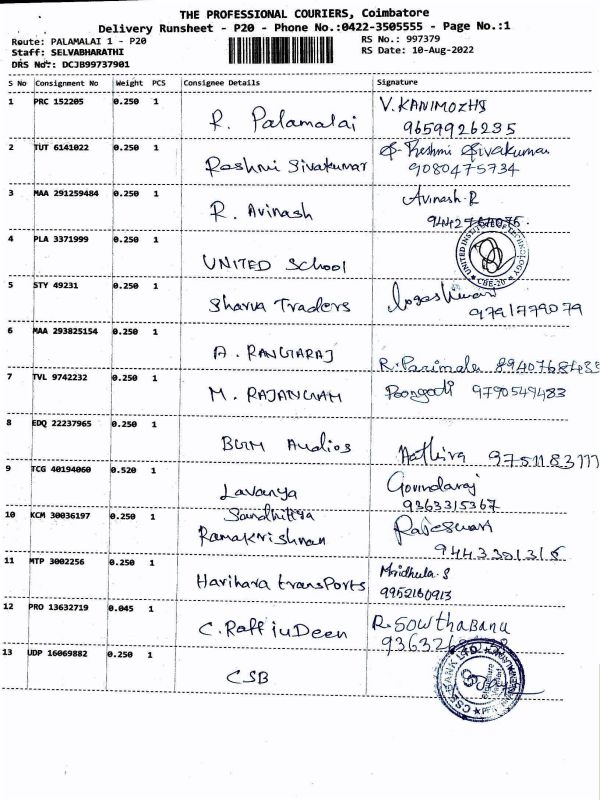 THE PROFESSIONAL COURIERS, Coimbatore
Delivery Runsheet - P20 - Phone No.:0422-3505555 - Page No.:1
Route: PALAMALAI 1 - P20
Staff: SELVABHARATHI
DRS No: DCJB99737901
RS No.: 997379
RS Date: 10-Aug-2022
S No Consignment No Weight PCS Consignee Details Signature
1 PRC 152205 0.250 1 R. Palamalai V. KANIMOZHI
9659926235
2 TUT 6141022 0.250 1 Rashmi Sivakumar S. Reshmi Sivakumar
9080475734
3 MAA 291259484 0.250 1 R. Avinash Avinash.R
4 PLA 3371999 0.250 1 UNITED School
UNITED INSTITUTE OF TECHNOLOGY
CBE-20
5 STY 49231 0.250 1 Sharva Traders Logeshwari
9791779079
6 MAA 293825154 0.250 1 A. RANGARAJ R. Parimala
7 TVL 9742232 0.250 1 M. RAJANGAM Poongodi 9790549483
8 EDQ 22237965 0.250 1 BGM Audios Aathira
9 TCG 40194060 0.520 1 Lavanya Govindaraj
9363315367
10 KCM 30036197 0.250 1 Sandhitya
Ramakrishnan Rajeswari
9443301315
11 MTP 3002256 0.250 1 Harihara transPorts Mridhula.S
9952160913
12 PRO 13632719 0.045 1 C. RaffiuDeen R. Sowthabanu
13 UDP 16069882 0.250 1 CSB
CSB BANK LTD.